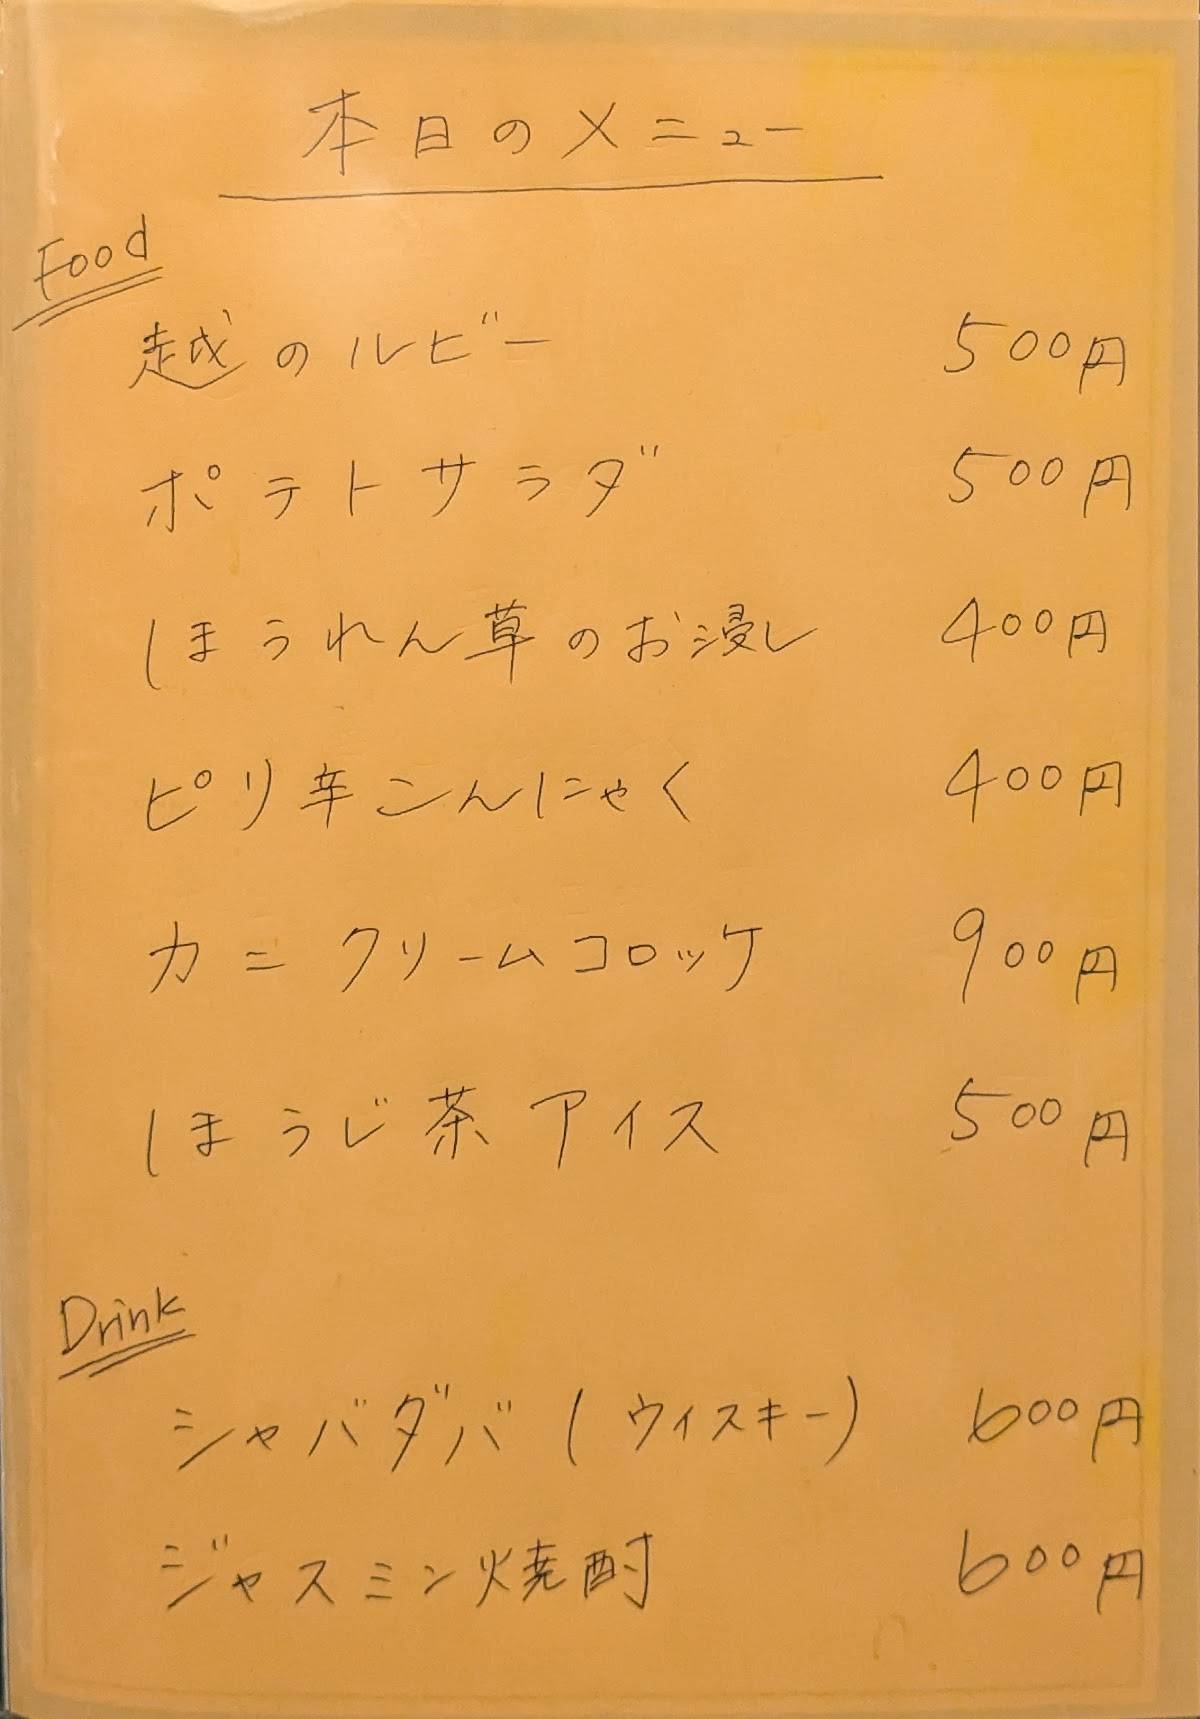 本日のメニュー
Food
越のルビー 500円
ポテトサラダ 500円
ほうれん草のお浸し 400円
ピリ辛こんにゃく 400円
カニクリームコロッケ 900円
ほうじ茶アイス 500円
Drink
シャバダバ(ウィスキー) 600円
ジャスミン焼酎 600円